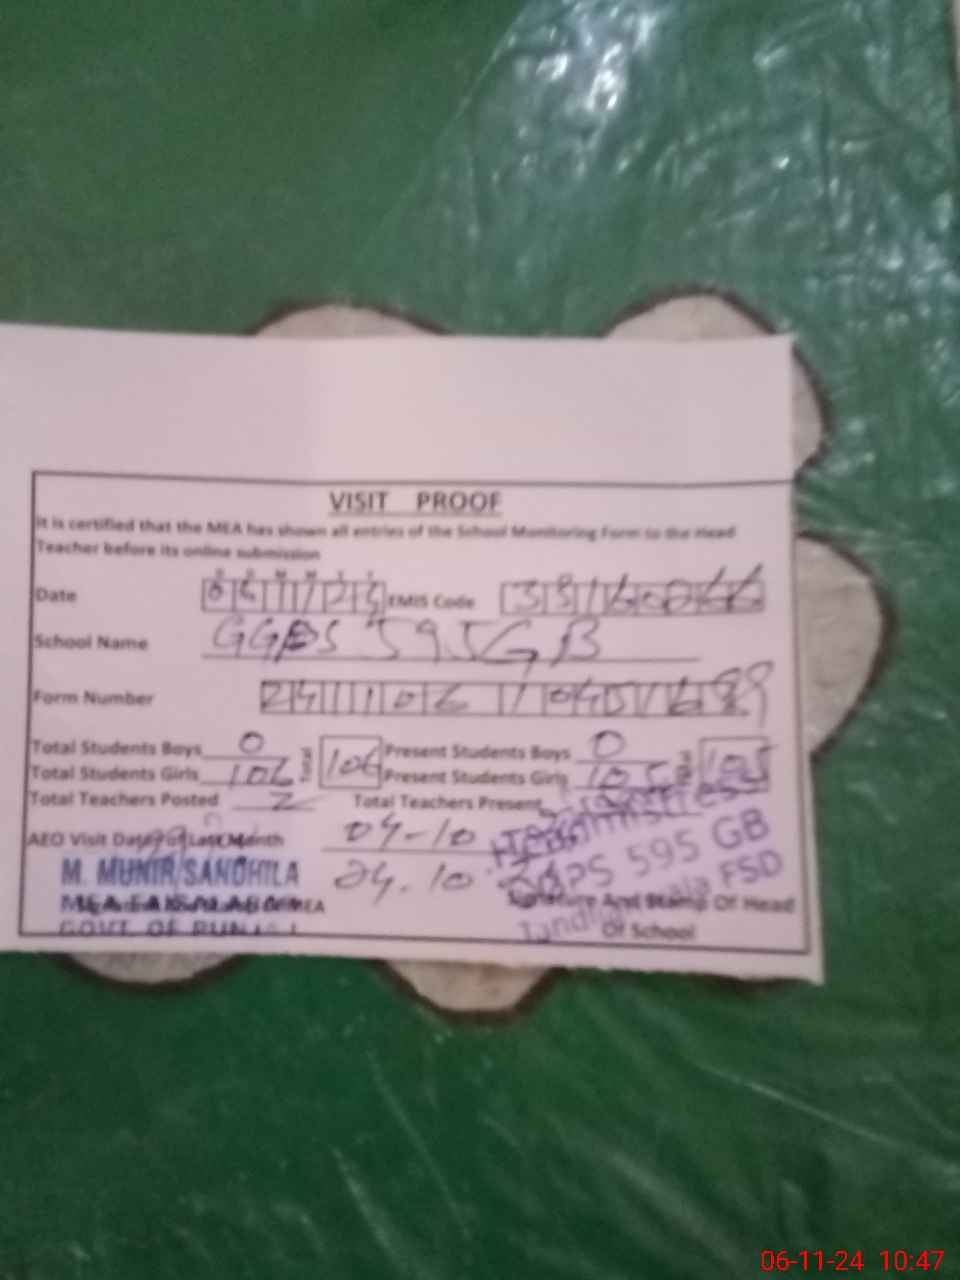 VISIT PROOF
It is certified that the MEA has shown all entries of the School Monitoring Form to the Head
Teacher before its online submission
D D M M Y Y
Date 06 11 24 EMIS Code
School Name GGPS 595 GB
Form Number
Total Students Boys 0 Total 106 Present Students Boys 0 105
Total Students Girls 106 Present Students Girls 105
Total Teachers Posted 2 Total Teachers Present
AEO Visit Date of Last Month 04-10
24.10
M. MUNIR SANDHILA
MEA FAISALABAD
GOVT. OF PUNJAB
MEA
Headmistress
GGPS 595 GB
Tandlianwala FSD
Signature And Stamp Of Head
Of School
06-11-24 10:47